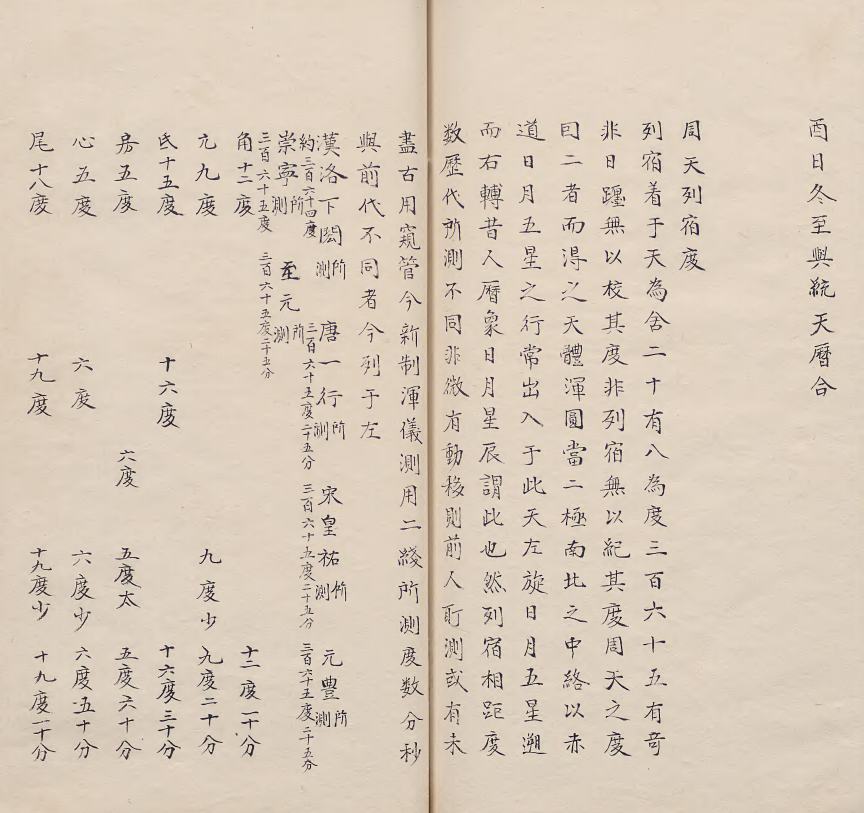 酉日冬至與統天曆合
周天列宿度
列宿着于天為舍二十有八為度三百六十五有竒
非日躔無以校其度非列宿無以紀其度周天之度
囙二者而淂之天體渾圓當二極南北之中絡以赤
道日月五星之行常出入于此天左旋日月五星遡
而右轉昔人曆象日月星辰謂此也然列宿相距度
数歷代所測不同非微有動移則前人所測或有未
盡古用窺管今新制渾儀測用二綫所測度数分秒
與前代不同者今列于左
漢洛下閎所測 唐一行所測 宋皇祐所測 元豐所測
約三百六十四度 三百六十五度二十五分 三百六十五度二十五分 三百六十五度二十五分
崇寧所測 至元所測
三百六十五度 三百六十五度二十五分
角十二度 十二度一十分
亢九度 九度少 九度二十分
氐十五度 十六度 十六度三十分
房五度 六度 五度太 五度六十分
心五度 六度 六度少 六度五十分
尾十八度 十九度 十九度少 十九度一十分